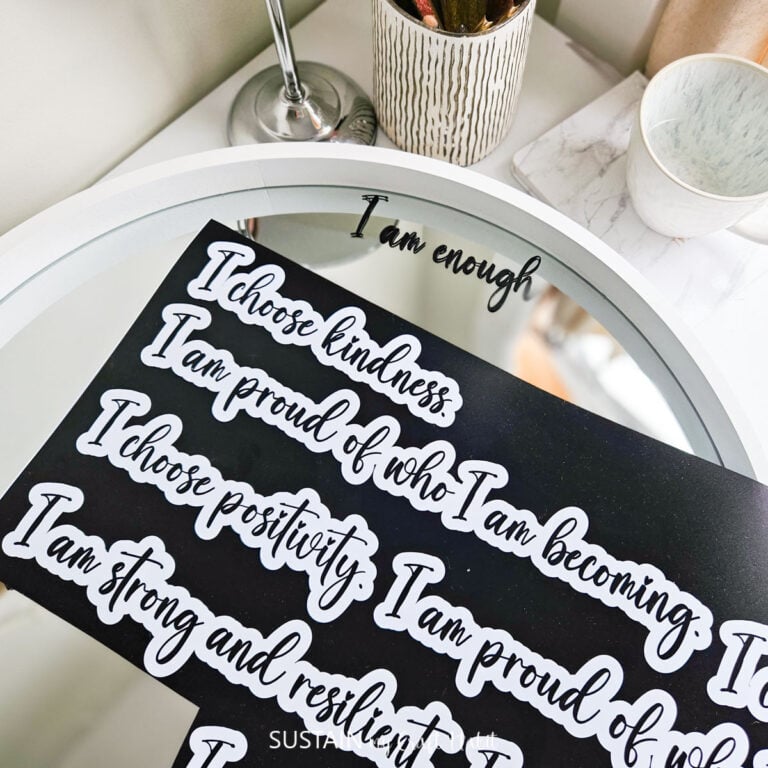 I am enough
I choose kindness.
I am proud of who I am becoming.
I choose positivity.
I am proud of
I am strong and resilient.
I
SUSTAIN